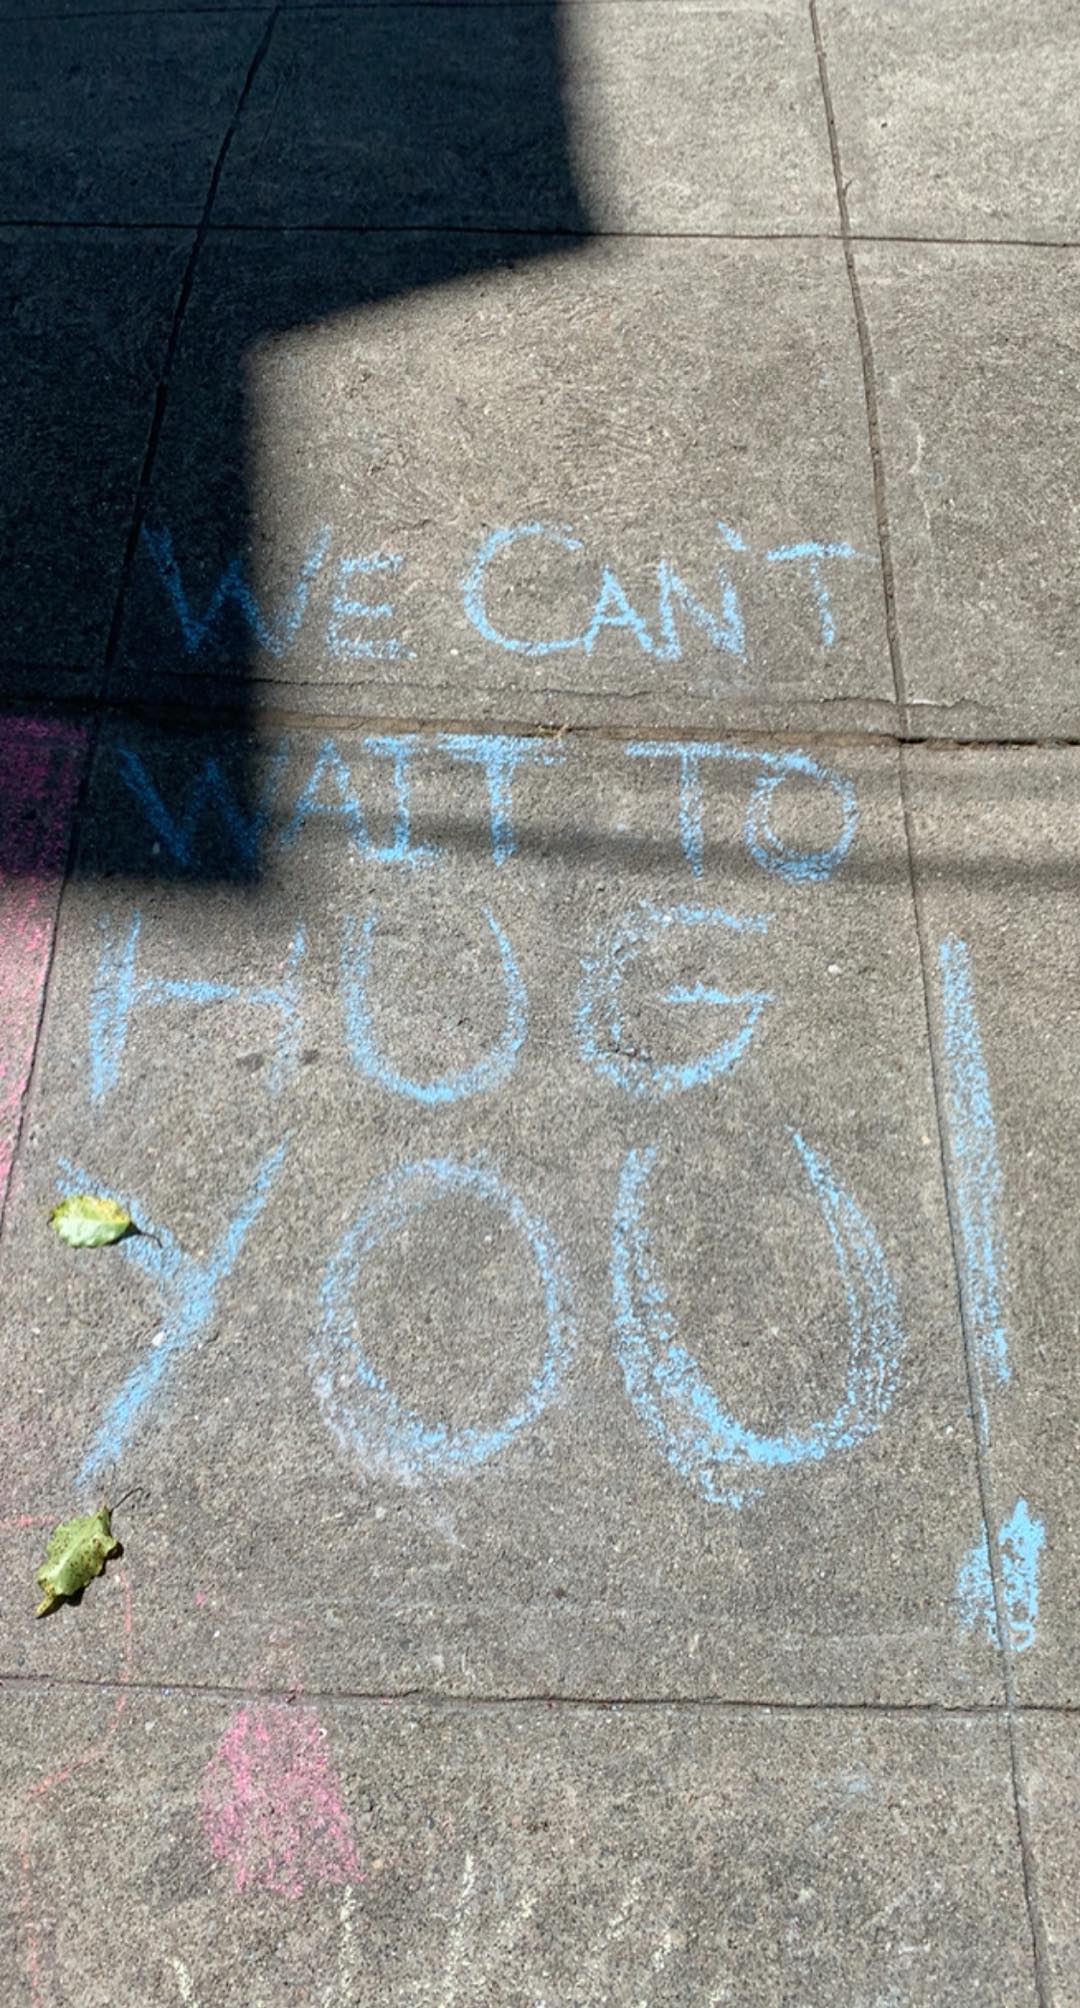 WE CAN'T
WAIT TO
HUG
YOU!